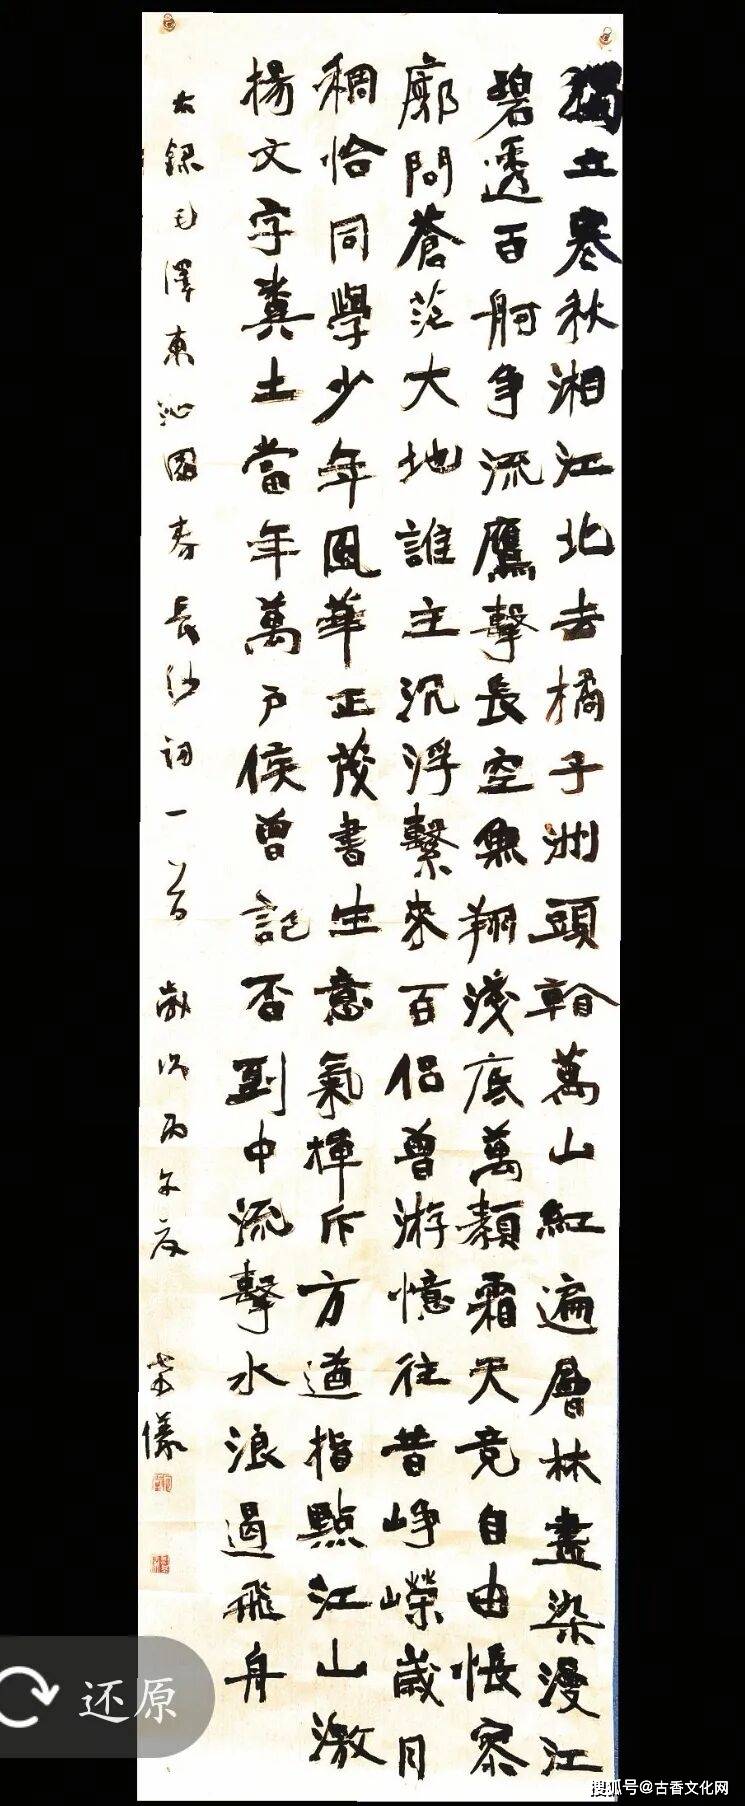 獨立寒秋湘江北去橘子洲頭看萬山紅遍層林盡染漫江
碧透百舸争流鷹擊長空魚翔淺底萬類霜天竟自由悵寥
廓問蒼茫大地誰主沉浮繫來百侣曾游憶往昔崢嶸歲月
稠恰同學少年風華正茂書生意氣揮斥方遒指點江山激
揚文字糞土當年萬户侯曾記否到中流擊水浪遏飛舟
右録毛澤東沁園春長沙詞一首 歲次丙午夏 儀
还原
搜狐号@古香文化网